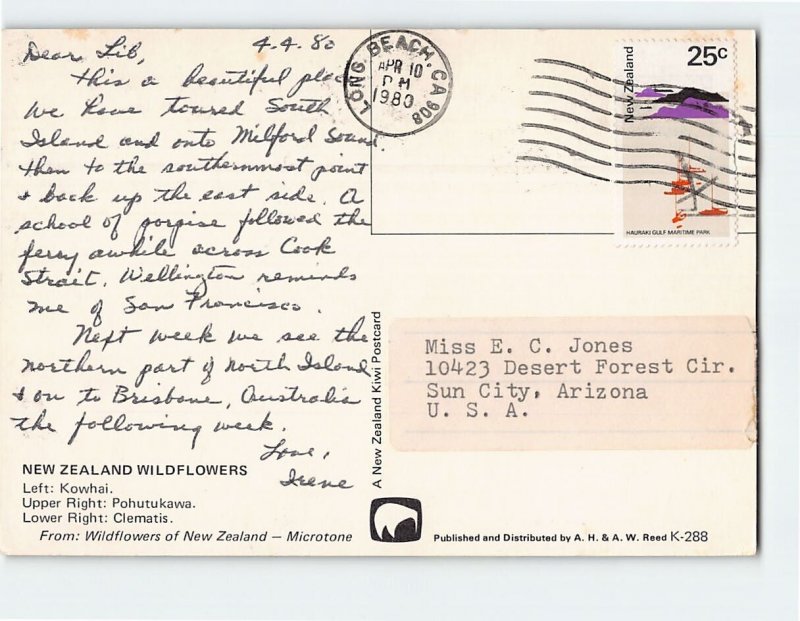 4.4.80
Dear Lib,
This a beautiful place
We have toured South
Island and onto Milford Sound.
then to the southernmost point
& back up the east side. A
school of porpise followed the
ferry awhile across Cook
Strait. Wellington reminds
me of San Francisco.
Next week we see the
northern part of North Island
& on to Brisbane, Australia
the following week.
Love,
Irene
NEW ZEALAND WILDFLOWERS
Left: Kowhai.
Upper Right: Pohutukawa.
Lower Right: Clematis.
From: Wildflowers of New Zealand — Microtone
A New Zealand Kiwi Postcard
LONG BEACH, CA 908
APR 10
PM
1980
New Zealand
25c
HAURAKI GULF MARITIME PARK
Miss E. C. Jones
10423 Desert Forest Cir.
Sun City, Arizona
U. S. A.
Published and Distributed by A. H. & A. W. Reed K-288